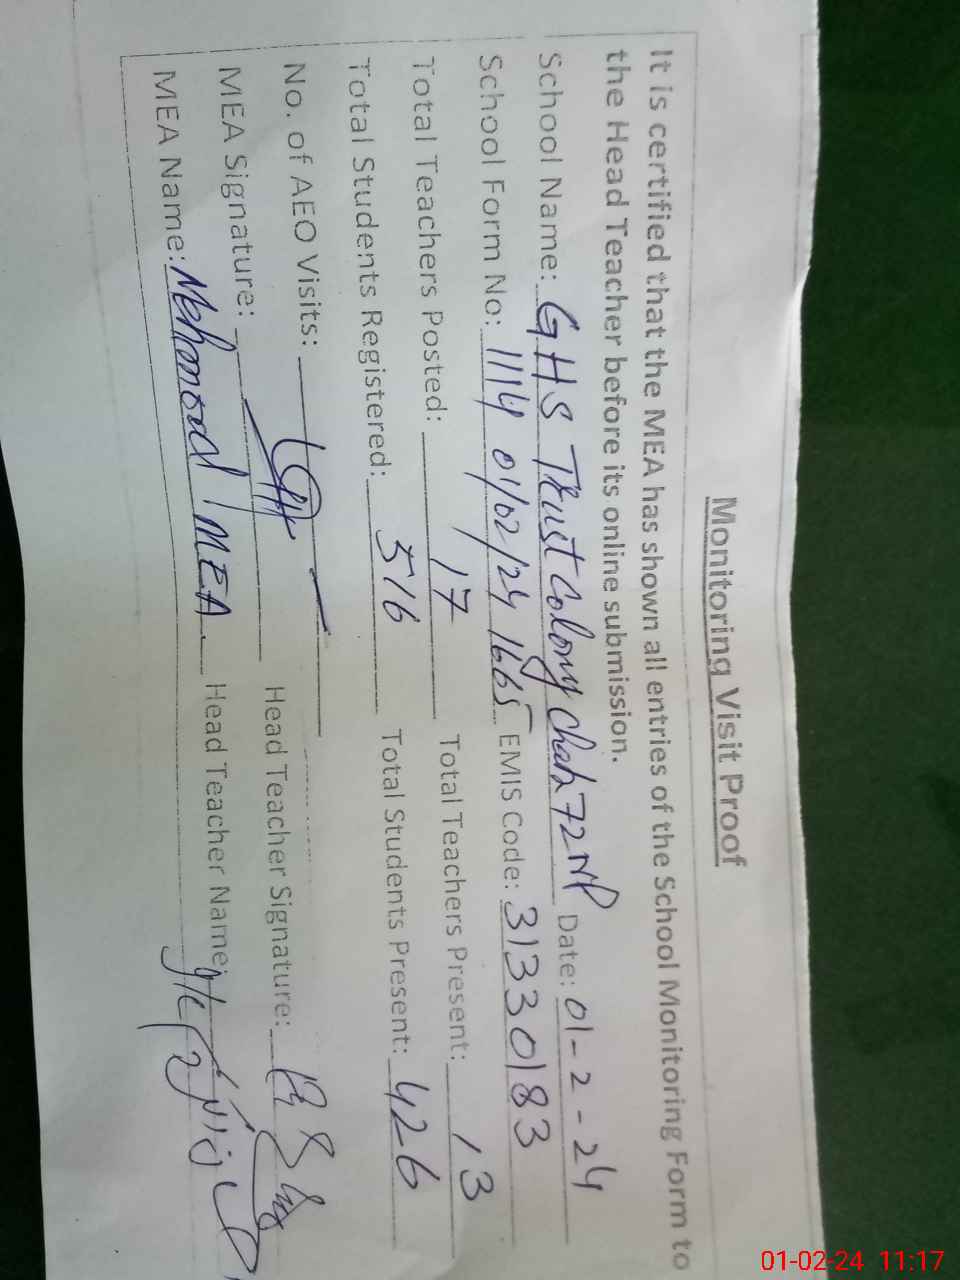 Monitoring Visit Proof
It is certified that the MEA has shown all entries of the School Monitoring Form to
the Head Teacher before its online submission.
School Name: GHS Trust Colony chak 72 NP Date: 01-2-24
School Form No: 1114 01/02/24 1665 EMIS Code: 31330183
Total Teachers Posted: 17 Total Teachers Present: 13
Total Students Registered: 516 Total Students Present: 426
No. of AEO Visits:
MEA Signature: Head Teacher Signature:
MEA Name: Mehmood MEA Head Teacher Name:
01-02-24 11:17